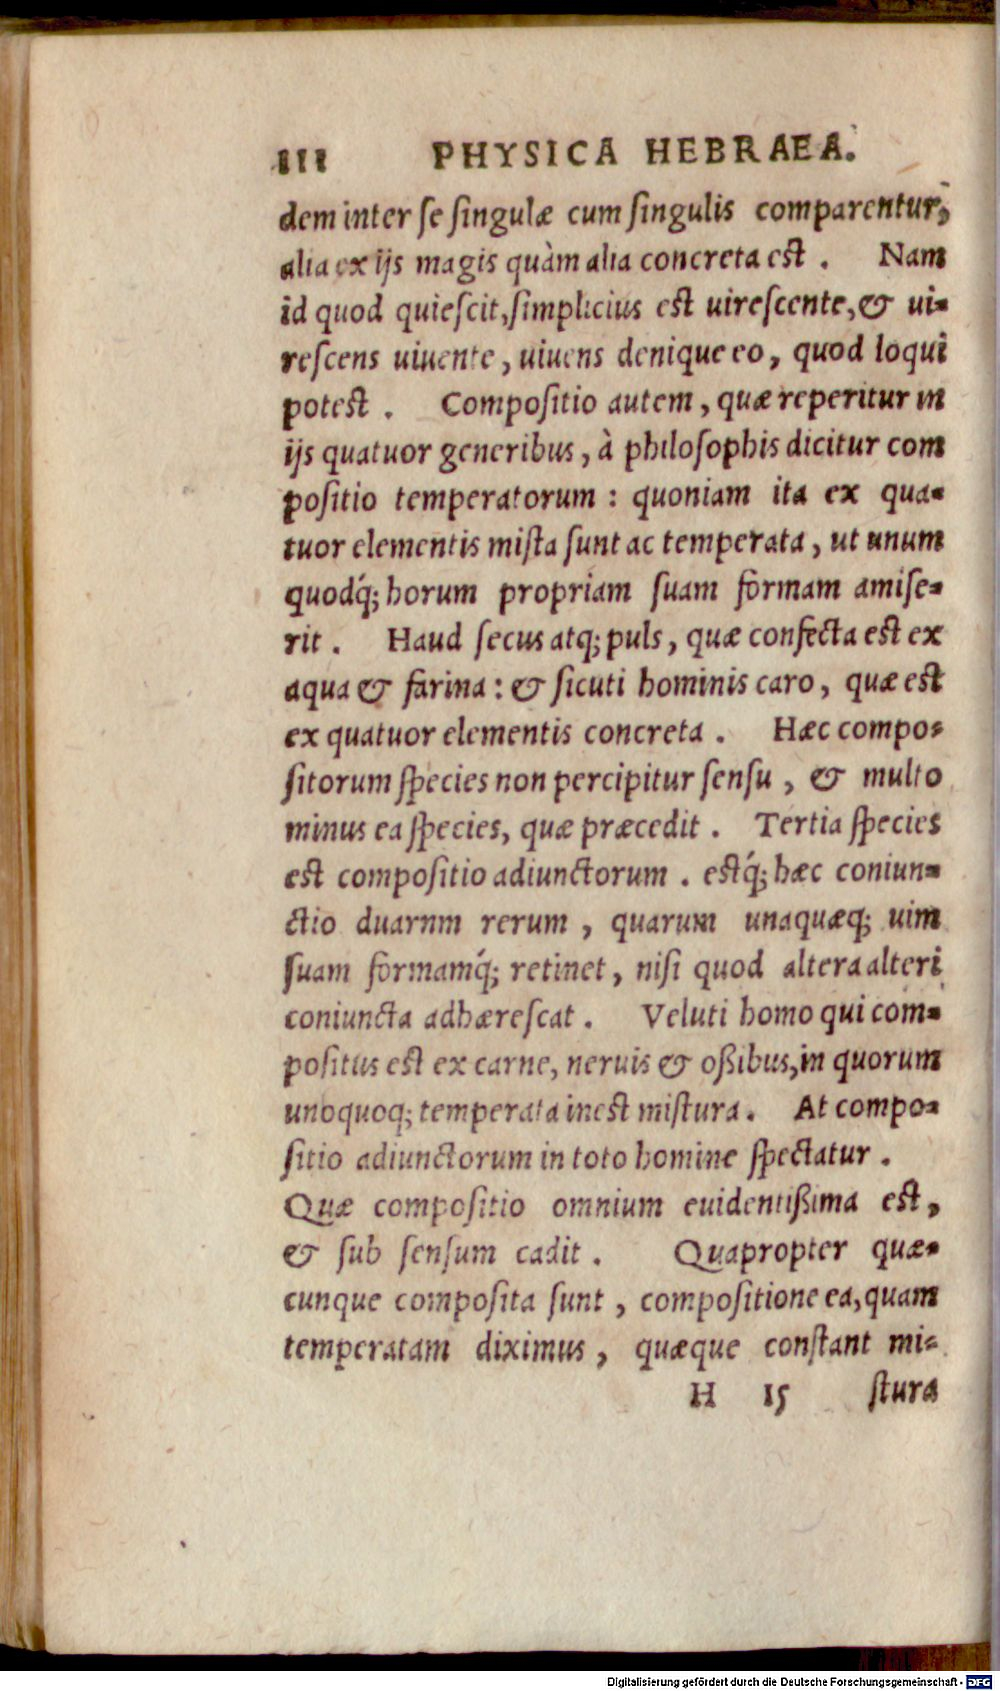 111 PHYSICA HEBRAEA.
dem inter se singulæ cum singulis comparentur,
alia ex ijs magis quàm alia concreta est . Nam
id quod quiescit, simplicius est uirescente, & ui-
rescens uiuente, uiuens denique eo, quod loqui
potest . Compositio autem, quæ reperitur in
ijs quatuor generibus, à philosophis dicitur com
positio temperatorum : quoniam ita ex qua-
tuor elementis mista sunt ac temperata, ut unum
quodq́; horum propriam suam formam amise-
rit . Haud secus atq; puls, quæ confecta est ex
aqua & farina : & sicuti hominis caro, quæ est
ex quatuor elementis concreta . Hæc compo-
sitorum species non percipitur sensu, & multo
minus ea species, quæ præcedit . Tertia species
est compositio adiunctorum . estq́; hæc coniun-
ctio duarnm rerum, quarum unaquæq; uim
suam formamq́; retinet, nisi quod altera alteri
coniuncta adhærescat . Veluti homo qui com-
positus est ex carne, neruis & oßibus, in quorum
unoquoq; temperata inest mistura . At compo-
sitio adiunctorum in toto homine spectatur .
Quæ compositio omnium euidentißima est,
& sub sensum cadit . Quapropter quæ-
cunque composita sunt, compositione ea, quam
temperatam diximus, quæque constant mi-
H 15 stura
Digitalisierung gefördert durch die Deutsche Forschungsgemeinschaft - DFG